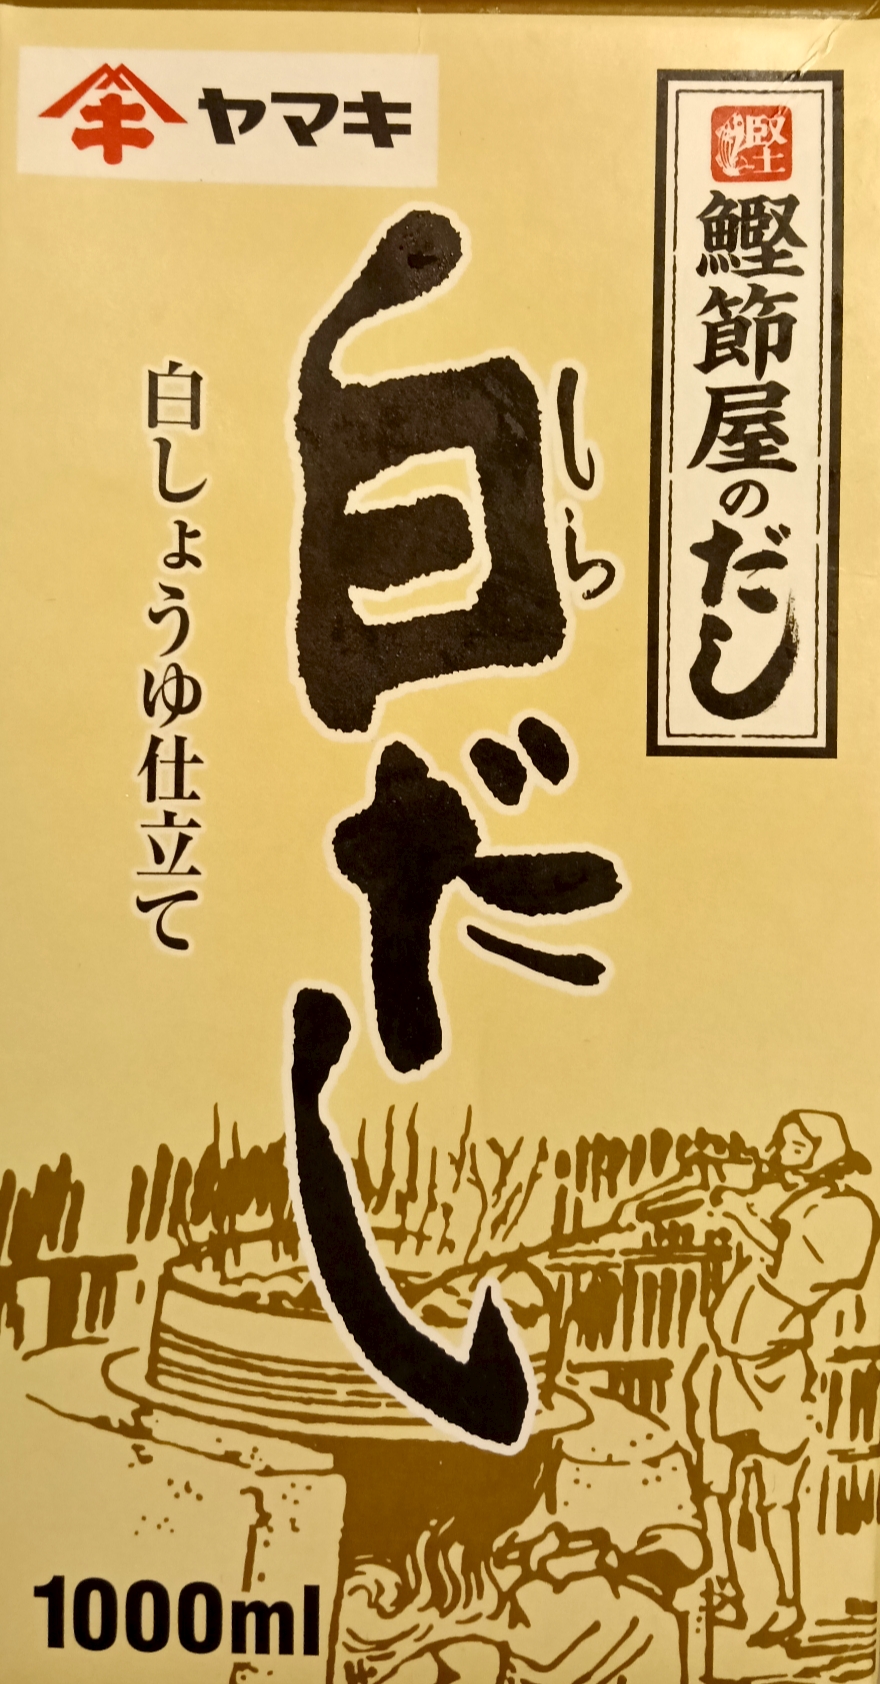 ヤマキ
鰹
鰹節屋のだし
しら
白だし
白しょうゆ仕立て
1000ml